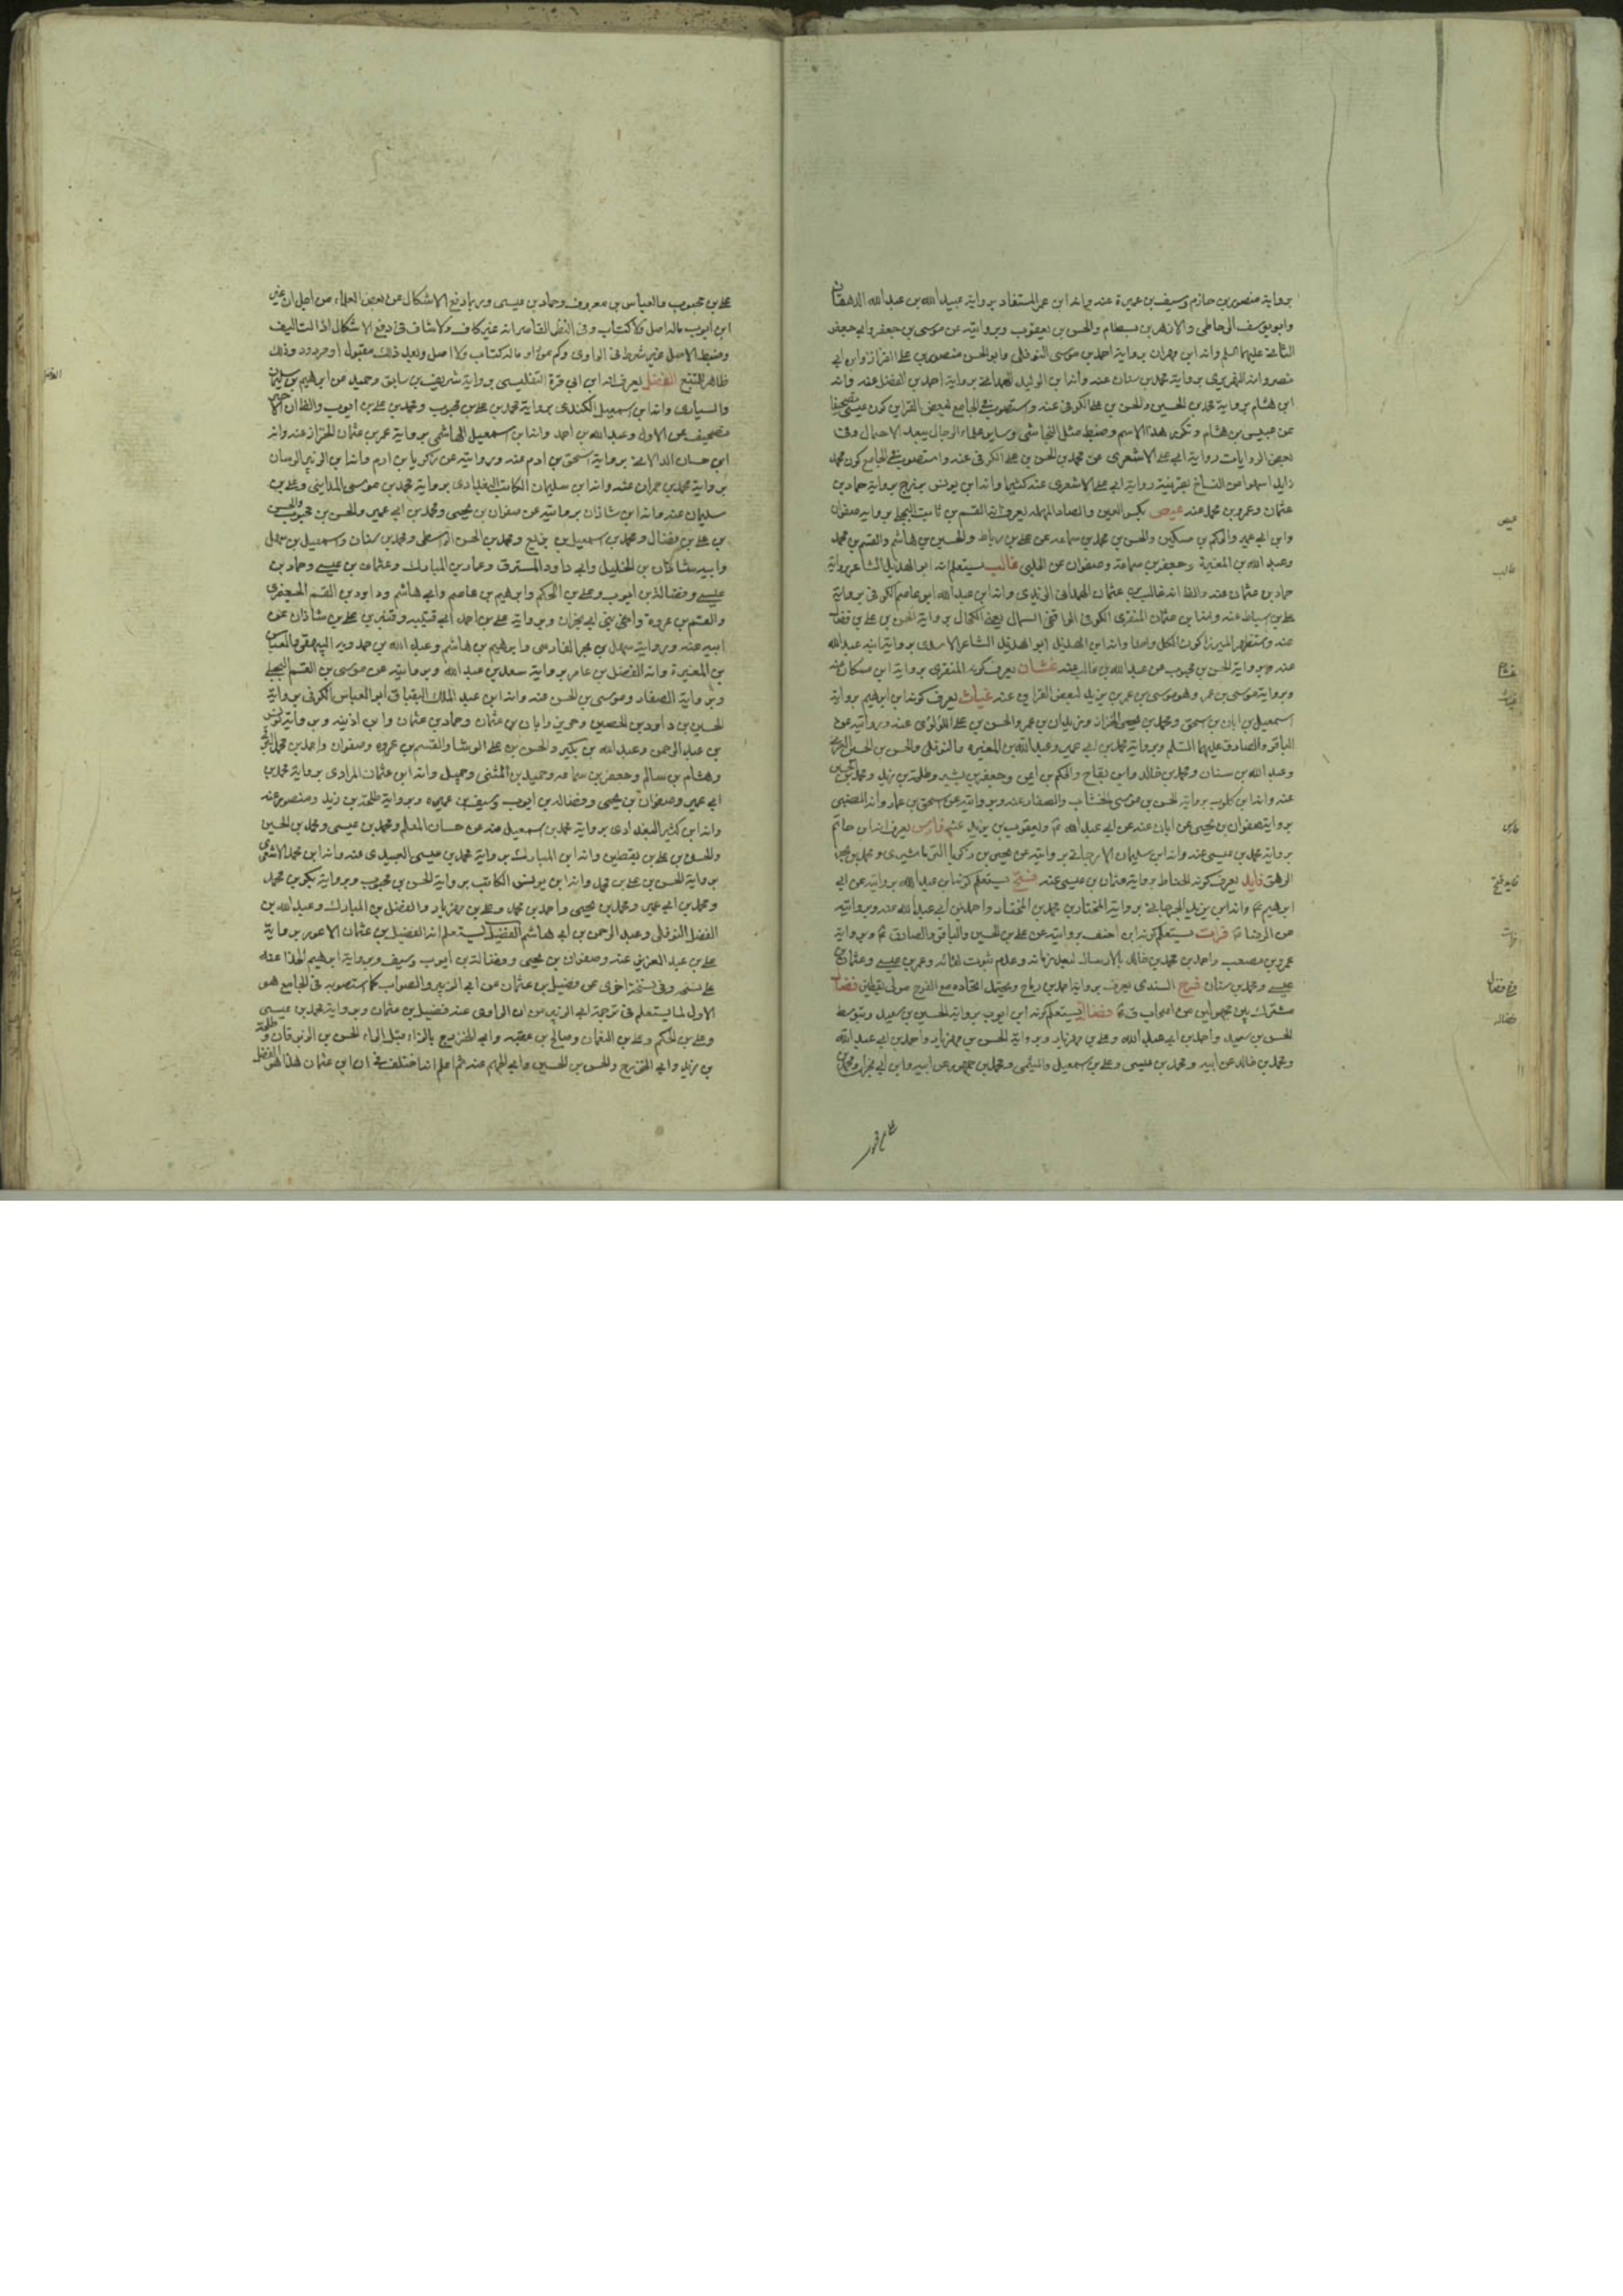 برواية منصور بن حازم وسيف بن عميرة عنه وانه ابن عمر المستفاد برواية عبيد الله بن عبد الله الدهقان
وابو يوسف الوحاطى والازهر بن بسطام والحسن بن يعقوب وبروايته عن موسى بن جعفر وابى جعفر
الثانى عليهما السلم وانه ابن مهران برواية احمد بن موسى النوفلى وابو الحسن منصور بن على القزاز وابن ابى
برواية محمد بن سنان عنه وانه ابن الوليد الهمدانى برواية احمد بن الفضل عنه وانه
ابن هشام برواية محمد بن الحسين والحسن بن على الكوفى عنه واستصوب فى الجامع لبعض القراين كون عيسى تصحيفا
عن عبيس بن هشام وتكرر هذا الاسم وضبط مثل النجاشى وساير علماء الرجال يبعد الاحتمال وفى
بعض الروايات رواية ابى على الاشعرى عن محمد بن الحسن بن على الكوفى عنه واستصوب فى الجامع كون محمد
زايدا سهوا من النساخ بقرينة رواية ابى على الاشعرى عنه كثيرا وانه ابن يونس بزرج برواية حماد بن
عثمان وعمرو بن محمد عنه عيص بكسر العين والصاد المهمله يعرف انه القسم بن ثابت البجلى برواية صفوان
وابن ابى عمير والحكم بن مسكين والحسن بن محمد بن سماعه عن على بن رباط والحسين بن هاشم والقسم بن محمد
وعبد الله بن المغيرة وجعفر بن سماعة وصفوان عن الحلبى غالب يستعلم انه ابو الهذيل الشاعر برواية
حماد بن عثمان عنه والظ انه غالب بن عثمان الهمدانى الزيدى وانه ابن عبد الله ابو عاصم الكوفى برواية
على بن اسباط عنه وانه ابن عثمان المنقرى الكوفى الواقفى السمال بمعنى الكحال برواية الحسن بن على بن فضال
عنه ويستظهر الميرزا كون الكل واحدا وانه ابن الهذيل ابو الهذيل الشاعر الاسدى برواية ابنه عبد الله
عنه وبرواية الحسن بن محبوب عن عبد الله بن غالب عنه غشان يعرف كونه المنقرى برواية ابن مسكان عنه
وبرواية موسى بن عمر وهو موسى بن عمر بن بزيد لبعض القراين عنه غياث يعرف كونه ابن ابرهيم برواية
اسمعيل بن ابان بن اسحق ومحمد بن عيسى الخزاز وبن بليان بن عمر والحسن بن على اللؤلؤى عنه وبروايته عن
الباقر والصادق عليهما السلم وبرواية محمد بن ابى عمير وعبد الله بن المغيره والنوفلى والحسن بن الحسين
وعبد الله بن سنان ومحمد بن خالد وابن بقاح والحكم بن ايمن وجعفر بن بشير وطلحة بن زيد ومحمد بن الحسين
عنه وانه ابن كلوب برواية الحسن بن موسى الخشاب والصفار عنه وبروايته عن اسحق بن عمار وانه الضبى
برواية صفوان بن يحيى عن ابان عنه عن ابى عبد الله ع ويعقوب بن يزيد عنه فارس يعرف انه ابن حاتم
برواية محمد بن عيسى عنه وانه ابن سليمان الارجانى بروايته عن يحيى بن زكريا الترماشيرى ومحمد بن بحر
الرهنى فايد يعرف كونه الحناط برواية عثمان بن عيسى عنه فتح يستعلم كونه ابن عبد الله بروايته عن ابى
ابرهيم ع وانه ابن يزيد الجرجانى برواية المختار بن محمد بن المختار واحمد بن ابى عبد الله عنه وبروايته
عن الرضا ع فرات يستعلم كونه ابن احنف بروايته عن على بن الحسين والباقر والصادق ع وبرواية
عمرو بن مصعب واحمد بن محمد بن خالد بالارسال لبعد زمانه وعدم ثبوت لقائه وعمر بن عيسى وعثمان بن
عيسى ومحمد بن سنان فرج السندى يعرف برواية احمد بن رباح ويحتمل اتحاده مع الفرج مولى يقطين فضال
مشترك بين مجهولين من اصحاب ق ع فضالة يستعلم كونه ابن ايوب برواية الحسين بن سعيد وبتوسط
الحسن بن سعيد واحمد بن ابى عبد الله وعلى بن مهزيار وبرواية الحسن بن مهزيار واحمد بن ابى عبد الله
ومحمد بن خالد عن ابيه ومحمد بن عيسى وعلى بن اسمعيل والميثمى ومحمد بن جمهور عن ابيه وابن ابى نجران ومحمد بن
عيص
غالب
غشان
غياث
فارس
فايد فتح
فرات
فرج فضال
فضاله
على بن محبوب والعباس بن معروف وحماد بن عيسى وربما دفع الاشكال عن بعض العلماء من اجل ان غير
ابن ايوب ماله اصل ولا كتاب وفى النظر القاصر انه غير كاف ولا شاف فى دفع الاشكال اذ التاليف
وضبط الاصل غير شرط فى الراوى وكم من راو ماله كتاب ولا اصل وبعد ذلك مقبول او مردود وذلك
ظاهر للمتتبع الفضل يعرف انه ابن ابى قرة التفليسى برواية شريف بن سابق وحميد عن ابرهيم بن سليمان
والسيارى وانه ابن اسمعيل الكندى برواية محمد بن على بن محبوب ومحمد بن على بن ايوب والظ ان الاخير
تصحيف عن الاول وعبد الله بن احمد وانه ابن اسمعيل الهاشمى برواية عمر بن عثمان الخزاز عنه وانه
ابن حسان الدالانى برواية اسحق بن ادم عنه وبروايته عن زكريا بن ادم وانه ابن الزبير الرسان
برواية محمد بن حمران عنه وانه ابن سليمان الكاتب البغدادى برواية محمد بن موسى المداينى وعلى بن
سليمان عنه وانه ابن شاذان بروايته عن صفوان بن يحيى ومحمد بن ابى عمير والحسن بن محبوب والحسن
بن على بن فضال ومحمد بن اسمعيل بن بزيع ومحمد بن الحسن الواسطى ومحمد بن سنان واسمعيل بن سهل
وابيه شاذان بن الخليل وابى داود المسترق وعمار بن المبارك وعثمان بن عيسى وحماد بن
عيسى وفضالة بن ايوب وعلى بن الحكم وابرهيم بن عاصم وابى هاشم وداود بن القسم الجعفرى
والقسم بن عروة وابن ابى نجران وبرواية على بن احمد ابن قتيبه وقنبر بن على بن شاذان عن
ابيه عنه وبرواية سهل بن بحر الفارسى وابرهيم بن هاشم وعبد الله بن حمدويه البيهقى والعباس
بن المغيرة وانه الفضل بن عامر برواية سعد بن عبد الله وبروايته عن موسى بن القسم البجلى
وبرواية الصفار وموسى بن الحسن عنه وانه ابن عبد الملك البقباق ابو العباس الكوفى برواية
الحسين بن داود بن الحصين وحريز وابان بن عثمان وحماد بن عثمان وابن اذينه وبرواية يونس
بن عبد الرحمن وعبد الله بن بكير والحسن بن على الوشا والقسم بن عروه وصفوان واحمد بن محمد
وهشام بن سالم وجعفر بن سماعه وحميد بن المثنى وجميل وانه ابن عثمان المرادى برواية محمد بن
ابى عمير وصفوان بن يحيى وفضاله بن ايوب وسيف بن عميره وبرواية طلحة بن زيد ومنصور عنه
وانه ابن كثير البغدادى برواية محمد بن اسمعيل عنه عن حسان المعلم ومحمد بن عيسى ومحمد بن الحسين
والحسن بن على بن يقطين وانه ابن المبارك برواية محمد بن عيسى العبيدى عنه وانه ابن محمد الاشعرى
برواية الحسن بن على بن محمد وانه ابن يونس الكاتب برواية الحسن بن محبوب وبرواية بكر بن محمد
ومحمد بن ابى عمير ومحمد بن يحيى واحمد بن محمد وعلى بن مهزيار والفضل بن المبارك وعبد الله بن
الفضل النوفلى وعبد الرحمن بن ابى هاشم الفضيل يستعلم انه الفضيل بن عثمان الاعور برواية
على بن عبد العزيز عنه وصفوان بن يحيى وفضالة بن ايوب وسيف وبرواية ابرهيم الحذا عنه
على نسخه وفى نسخة اخرى عن فضيل بن عثمان عن ابى الزبير والصواب كما استصوبه فى الجامع هو
الاول لما يستعلم فى ترجمة ابى الزبير من ان الراوى عنه فضيل بن عثمان وبرواية محمد بن عيسى
وعلى بن الحكم وعلى بن النعمان وصالح بن عقبه وابى الخزرج بالزاء قبل الراء الحسن بن الزبرقان وطلحة
بن زيد وابى الخزرج والحسن بن الحسين وابى الجهم عنه ثم اعلم انه اختلف فى ان ابن عثمان هذا هو الفضل
الفضل